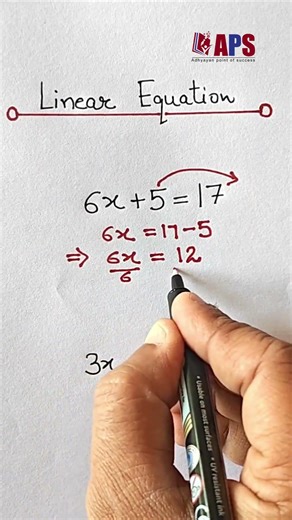 APS
Adhyayan point of success
Linear Equation
6x + 5 = 17
6x = 17 - 5
⇒ 6x/6 = 12
3x
• Usable on most surfaces
• UV resistant ink